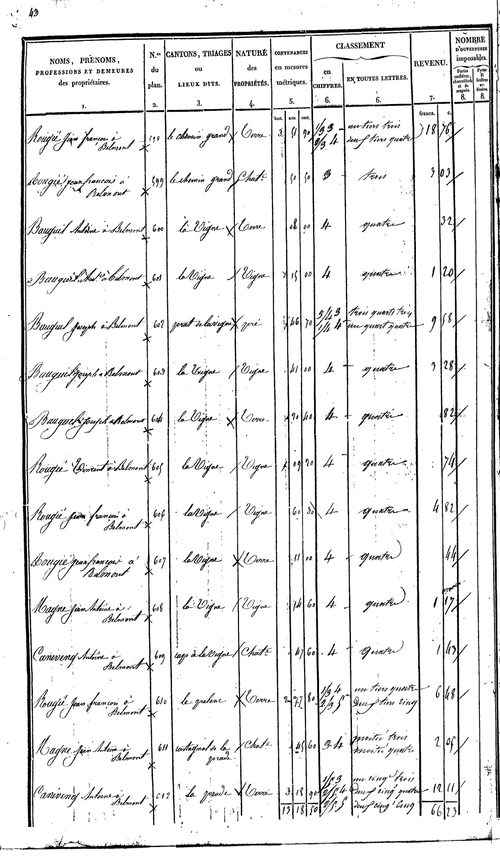 43
NOMS, PRÉNOMS, PROFESSIONS ET DEMEURES des propriétaires. N.os du plan. CANTONS, TRIAGES ou LIEUX DITS. NATURE des PROPRIÉTÉS. CONTENANCES en mesures métriques. CLASSEMENT en CHIFFRES. EN TOUTES LETTRES. REVENU. NOMBRE D'OUVERTURES imposables.
1. 2. 3. 4. 5. 6. 6. 7. 8. 8.
francs. c.
Rougié Jean françois à Belmont 598 le chemin grand Terre 1/3 3 2/3 4 un tiers trois deux tiers quatre 18 76
Rougié Jean françois à Belmont 599 le chemin grand Chat. 50 50 3 trois 3 03
Bauguil Antoine à Belmont 600 la Vigne Terre 08 00 4 quatre 32
601 la Vigne Vigne 15 00 4 quatre 1 20
Bauguil Joseph à Belmont 602 prat de la vigne pré 46 70 3/4 3 1/4 4 trois quarts trois un quart quatre 9 58
Bauguil Joseph à Belmont 603 la Vigne Vigne 41 00 4 quatre 3 28
Bauguil Joseph à Belmont 604 la Vigne Terre 20 40 4 quatre 82
Rougié Vincent à Belmont 605 la Vigne Vigne 09 20 4 quatre 74
Rougié Jean françois à Belmont 606 la Vigne Vigne 60 30 4 quatre 4 82
Rougié Jean françois à Belmont 607 la Vigne Terre 11 00 4 quatre 44
Magne Jean Antoine à Belmont 608 la Vigne Vigne 14 60 4 quatre 1 17
Canivenq Antoine à Belmont 609 cap à la Vigne Chat. 47 60 4 quatre 1 43
Rougié Jean françois à Belmont 610 Terre 2 77 80 1/3 4 2/3 5 un tiers quatre deux tiers cinq 6 48
Magne Jean Antoine à Belmont 611 de la prade Chat. 45 60 3 4 moitié trois moitié quatre 2 05
Canivenq Antoine à Belmont 612 la prade Terre 3 18 90 1/5 3 2/5 4 2/5 5 un cinq. trois deux cinq. quatre deux cinq. cinq 12 11
13 18 50 66 23